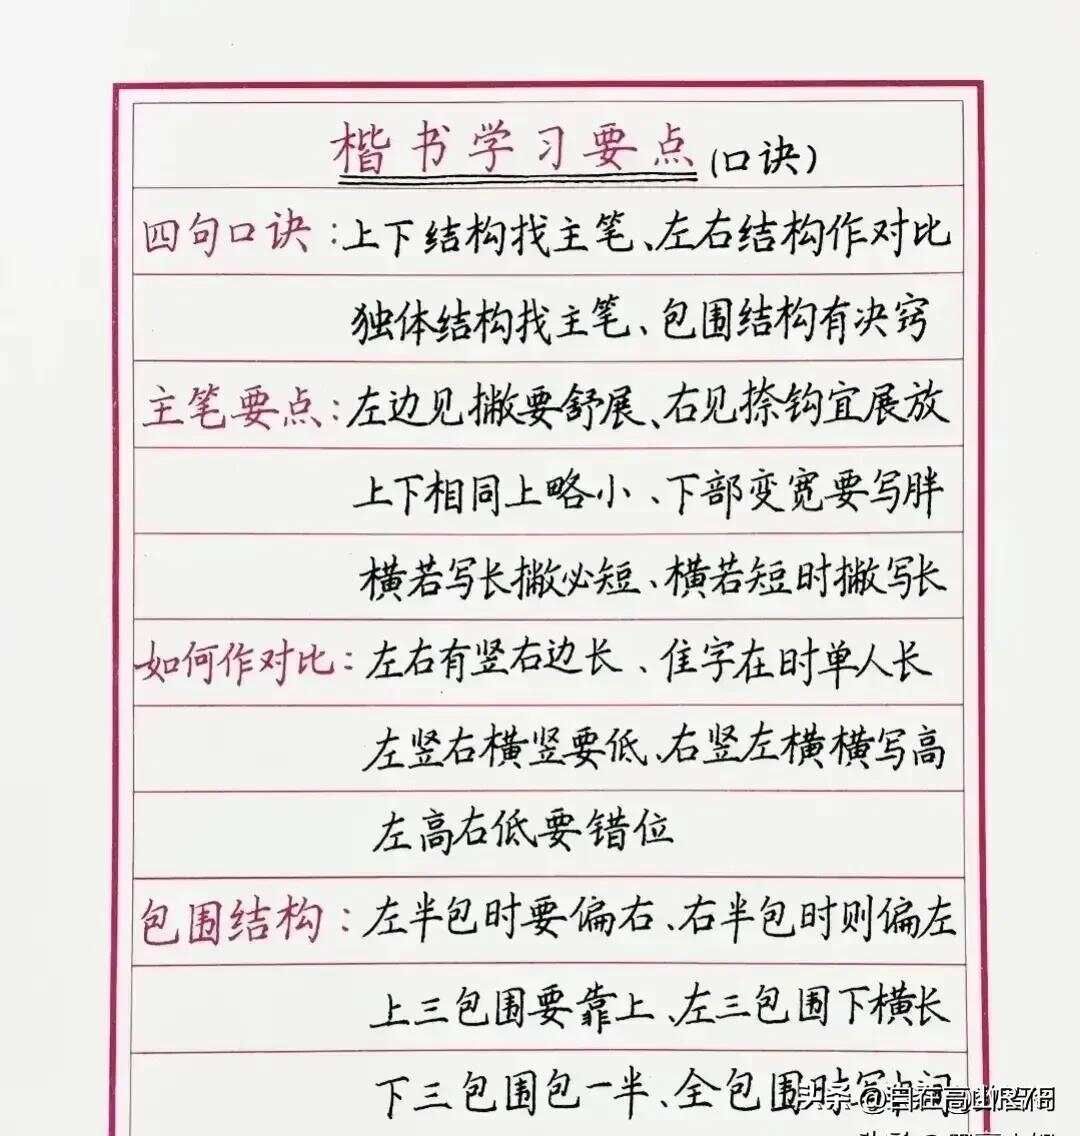 楷书学习要点(口诀)
四句口诀：上下结构找主笔、左右结构作对比
独体结构找主笔、包围结构有决窍
主笔要点：左边见撇要舒展、右见捺钩宜展放
上下相同上略小、下部变宽要写胖
横若写长撇必短、横若短时撇写长
如何作对比：左右有竖右边长、隹字在时单人长
左竖右横竖要低、右竖左横横写高
左高右低要错位
包围结构：左半包时要偏右、右半包时则偏左
上三包围要靠上、左三包围下横长
下三包围包一半、全包围时写中间
头条